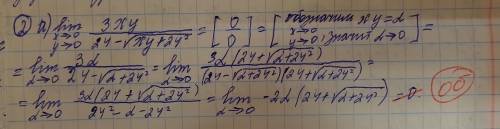 ② а) lim x→0 y→0 3xy / (2y - √(xy + 2y²)) = [0/0] = [обозначим xy = α x→0 y→0, значит α→0] =
= lim α→0 3α / (2y - √(α + 2y²)) = lim α→0 3α (2y + √(α + 2y²)) / ((2y - √(α + 2y²))(2y + √(α + 2y²))) =
= lim α→0 3α (2y + √(α + 2y²)) / (2y² - α - 2y²) = lim α→0 -2α (2y + √(α + 2y²)) = 0. 0б